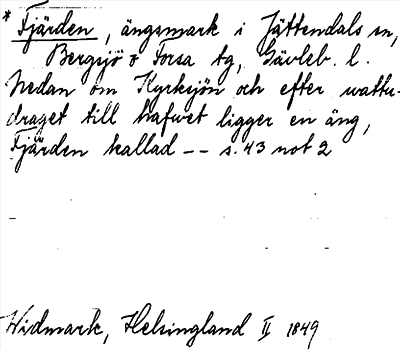 * Fjärden, ängsmark i Jättendals sn,
Bergsjö o Forsa tg, Gävleb. l.
Nedan om Kyrksjön och efter wattu-
draget till hafwet ligger en äng,
Fjärden kallad -- s. 43 not 2
Widmark, Helsingland II 1849